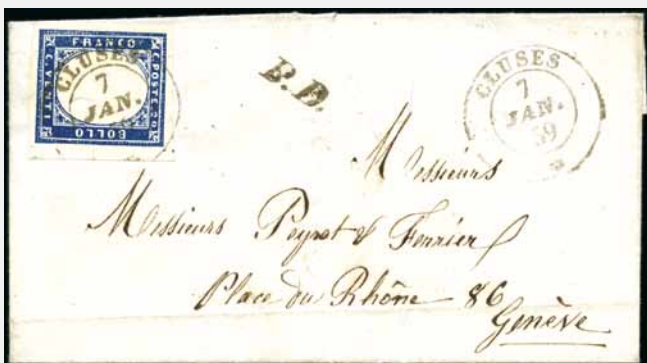 FRANCO
C. VENTI
C. POSTE 20
BOLLO
CLUSES
7
JAN.
B.D.
CLUSES
7
JAN.
59
Messieurs
Messieurs Peyrot & Ferrier
Place du Rhône 86
Genève